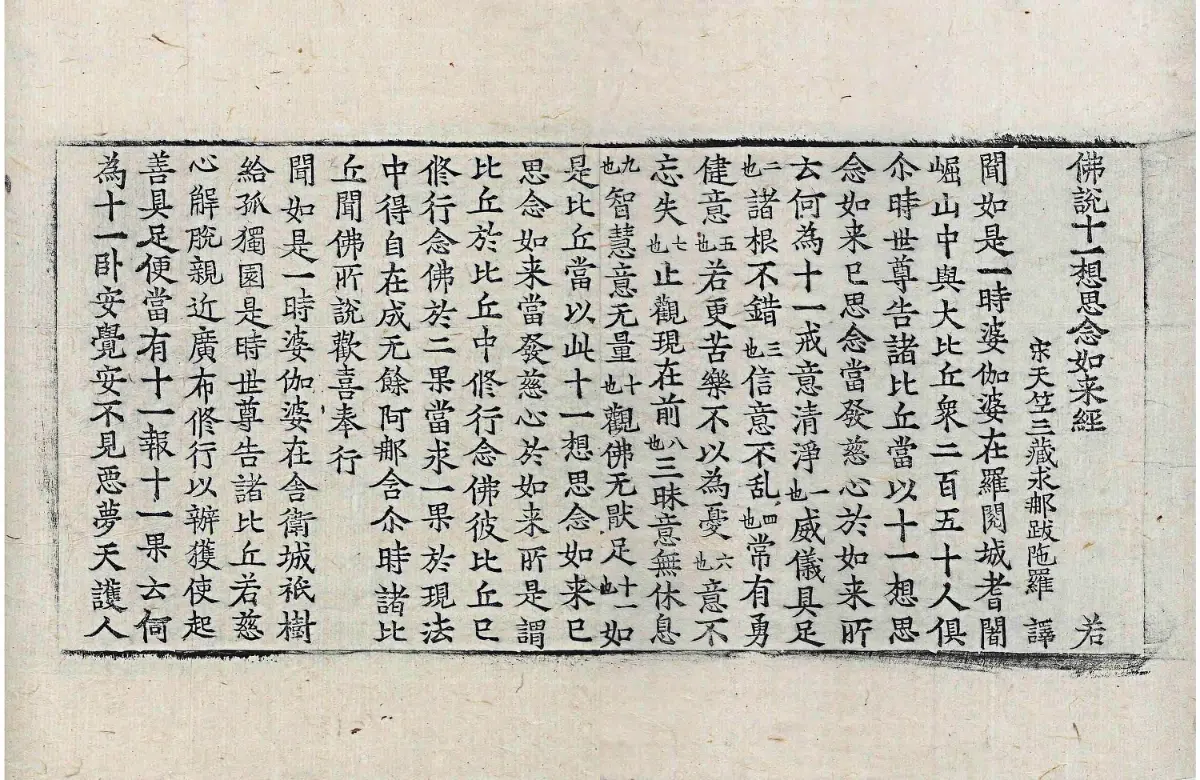 佛說十一想思念如来經 若
宋天竺三藏求那跋陁羅 譯
聞如是一時婆伽婆在羅閱城耆闍
崛山中與大比丘衆二百五十人俱
尒時世尊告諸比丘當以十一想思
念如来已思念當發慈心於如来所
云何為十一戒意清淨一也威儀具足
二也諸根不錯三也信意不乱四也常有勇
健意五也若更苦樂不以為憂六也意不
忘失七也止觀現在前八也三昧意無休息
九也智慧意无量十也觀佛无猒足十一也如
是比丘當以此十一想思念如来已
思念如来當發慈心於如来所是謂
比丘於比丘中修行念佛彼比丘已
修行念佛於二果當求一果於現法
中得自在成无餘阿那含尒時諸比
丘聞佛所說歡喜奉行
聞如是一時婆伽婆在舍衛城祇樹
給孤獨園是時世尊告諸比丘若慈
心解脫親近廣布修行以辦獲使起
善具足便當有十一報十一果云何
為十一卧安覺安不見惡夢天護人